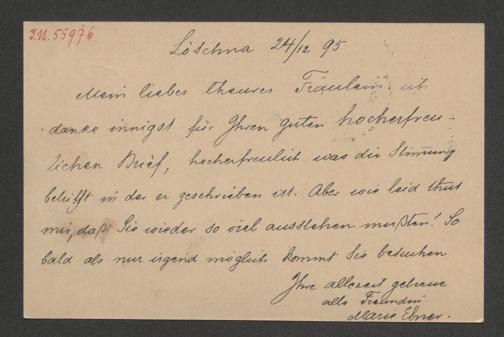 I.N. 55976
Löschna 24/12 95
Mein liebes theures Fräulein ich
danke innigst für Ihren guten hocherfreu-
lichen Brief, hocherfreulich was die Stimung
betrifft in der er geschrieben ist. Aber wie leid thut
mir, daß Sie wieder so viel ausstehen mußten! So
bald als nur irgend möglich kommt Sie besuchen
Ihre allezeit getreue
alte Freundin
Marie Ebner.